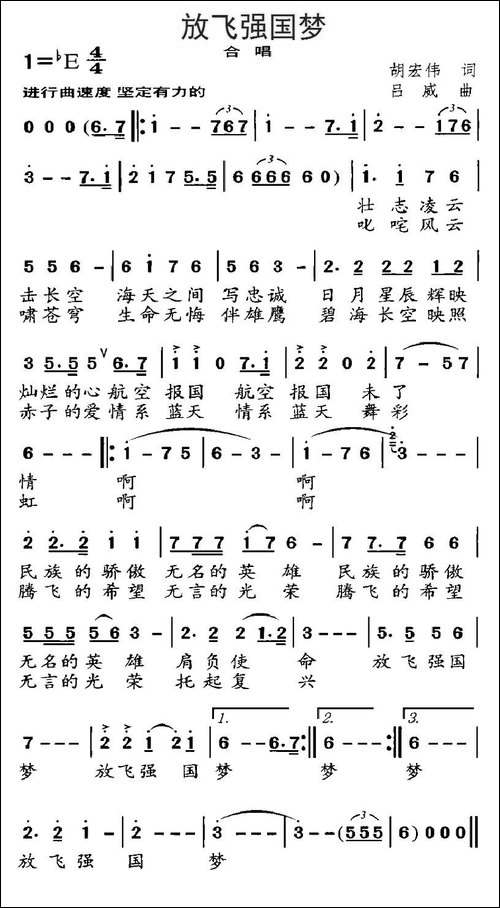 放飞强国梦
合唱
1=♭E 4/4
胡宏伟 词
进行曲速度 坚定有力的
吕威 曲
0 0 0 (6.7 |: 1 - - 767 | 1 - - 7.1 | 2 - - 176 |
3 - - 7.1 | 2 1 7 5.5 | 6 666 6 0) | 1. 1 7 6 |
壮志凌云
叱咤风云
5 5 6 - | 6 1 7 6 | 5 6 3 - | 2. 2 2 2 1 2 |
击长空 海天之间 写忠诚 日月星辰辉映
啸苍穹 生命无悔 伴雄鹰 碧海长空映照
3 5.5 5 ∨ 6.7 | 1 1 0 7.1 | 2 2 0 2 | 7 - 5 7 |
灿烂的心航空报国 航空报国 未了
赤子的爱情系蓝天 情系蓝天 舞彩
6 - - - |: 1 - 7 5 | 6 - 3 - | 1 - 7 6 | 2 3 - - - |
情 啊 啊
虹 啊 啊
2 2. 2 1 1 | 7 7 7 1 7 6 - | 7 7. 7 6 6 |
民族的骄傲 无名的英雄 民族的骄傲
腾飞的希望 无言的光荣 腾飞的希望
5 5 5 5 6 3 - | 2. 2 2 1.2 | 3 - - - | 5. 5 5 6 |
无名的英雄 肩负使命 放飞强国
无言的光荣 托起复兴
7 - - - | 2 2 1 2 1 | 1. 6 - - 6.7 :| 2. 6 - - - :| 3. 6 - - - |
梦 放飞强国梦 梦 梦
2. 2 1 - | 2 - - - | 3 - - - | 3 - - (555 | 6) 0 0 0 ||
放飞强 国 梦